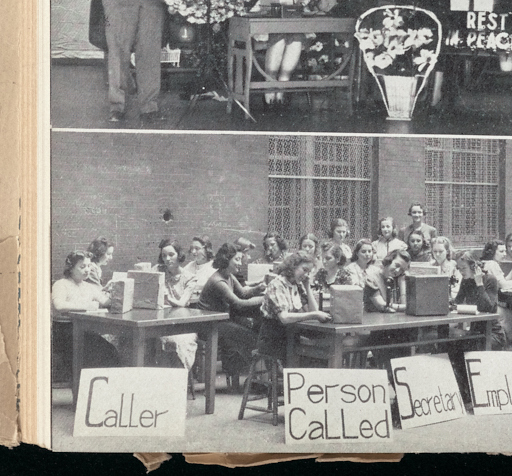 REST
IN PEACE
Caller
Person
Called
Secretary
Empl